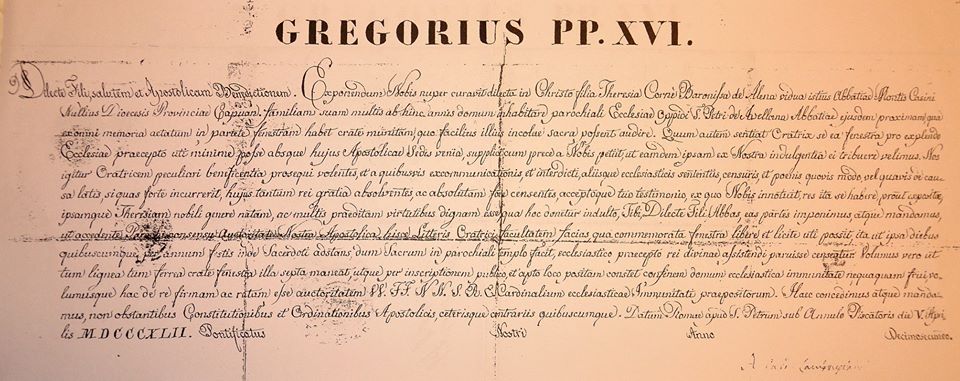 GREGORIUS PP. XVI.
Dilecte Fili, salutem et Apostolicam Benedictionem. Exponendum Nobis nuper curavit dilecta in Christo filia Theresia Corni Baronissa de Alena vidua istius Abbatiae Montis Casini
Nullius Dioecesis Provinciae Capuan. familiam suam multis ab hinc annis domum inhabitare parochiali Ecclesiae Oppidi S. Petri de Avellana Abbatiae ejusdem proximam, quae
ex omni memoria aetatum in pariete fenestram habet crate munitam, quo facilius illius incolae sacra possent audire. Quum autem sentiat Oratrix se ea fenestra pro explendo
Ecclesiae praecepto uti minime posse absque hujus Apostolicae Sedis venia, supplici cum prece a Nobis petiit, ut eamdem ipsam ex Nostra indulgentia ei tribuere velimus. Nos
igitur Oratricem peculiari beneficentia prosequi volentes, et a quibusvis excommunicationis et interdicti, aliisque ecclesiasticis sententiis censuris et poenis quovis modo, vel quavis de cau-
sa latis si quas forte incurrerit, hujus tantum rei gratia absolventes, ac absolutam fore censentes, acceptoque tuo testimonio, ex quo Nobis innotuit, res ita se habere, prout expositae,
ipsamque Theresiam nobili genere natam, ac multis praeditam virtutibus dignam esse qua hoc donetur indulto, Tibi, Dilecte Fili Abbas, eas partes imponimus, atque mandamus,
ut accedente Parochi consensu Auctoritate Nostra Apostolica hisce Litteris Oratrici facultatem facias, qua commemorata fenestra libere et licite uti possit, ita ut ipsa diebus
quibuscumque per annum festis inde Sacerdoti adstans dum Sacrum in parochiali templo facit, ecclesiastico praecepto rei divinae assistendi paruisse censeatur. Volumus vero ut
tum lignea tum ferrea crate fenestra illa septa maneat, utque per inscriptionem publico, et apto loco positam constet confinem domum ecclesiastica immunitate nequaquam frui, vo-
lumusque hac de re firmam ac ratam esse auctoritatem VV. FF. N N. S. R. E. Cardinalium ecclesiasticae Immunitati praepositorum. Haec concedimus atque manda-
mus, non obstantibus Constitutionibus et Ordinationibus Apostolicis, ceterisque contrariis quibuscumque. Datum Romae apud S. Petrum sub Annulo Piscatoris die V. Apri-
lis MDCCCXLII. Pontificatus Nostri Anno Decimosecundo.